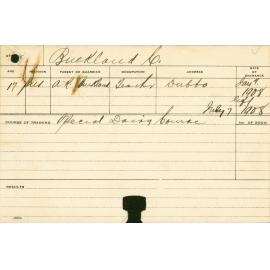 Buckland C.
AGE RELIGION PARENT OR GUARDIAN OCCUPATION ADDRESS DATE OF ENTRANCE
17 Pres. A. R. Buckland Teacher Dubbo Jany 1908
left
July 7 1908
COURSE OF TRAINING Special Dairy Course
RESULTS